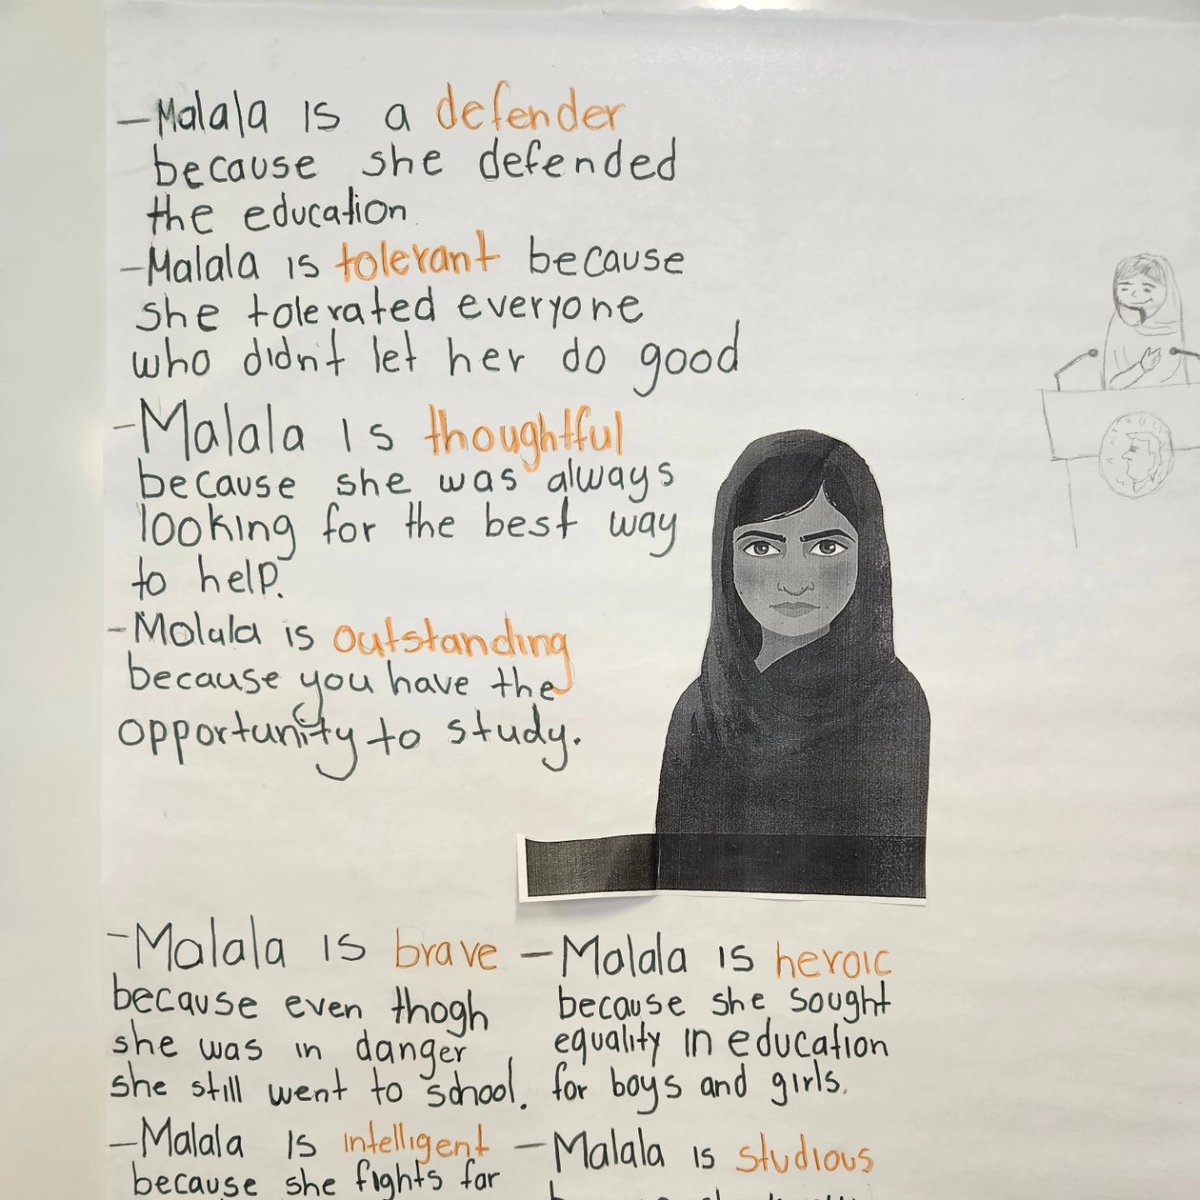 - Malala is a defender
because she defended
the education
- Malala is tolerant because
she tolerated everyone
who didn't let her do good
- Malala is thoughtful
because she was always
looking for the best way
to help.
- Malala is outstanding
because you have the
opportunity to study.
- Malala is brave
because even thogh
she was in danger
she still went to school.
- Malala is heroic
because she sought
equality in education
for boys and girls.
- Malala is intelligent
because she fights for
- Malala is studious